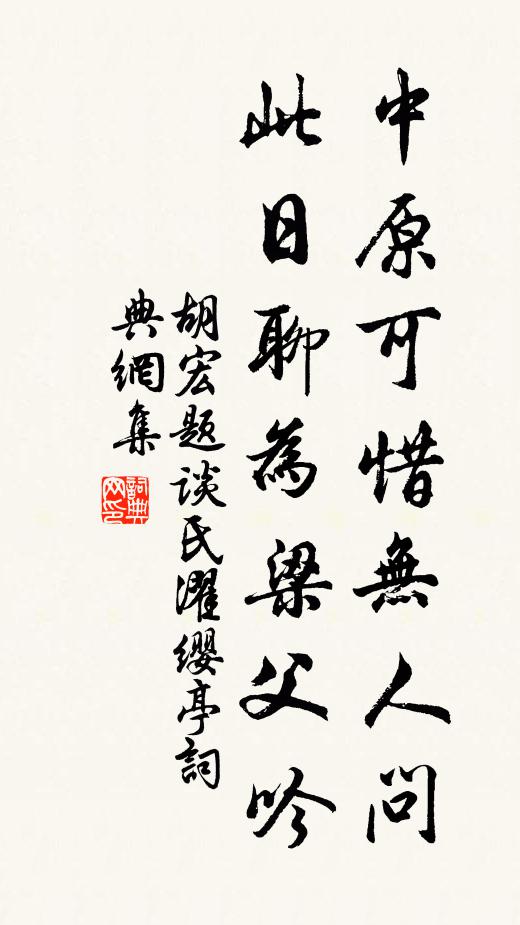 中原可惜無人問
此日聊為梁父吟
胡宏題谈氏濯缨亭詞
典網集
詞典
网印